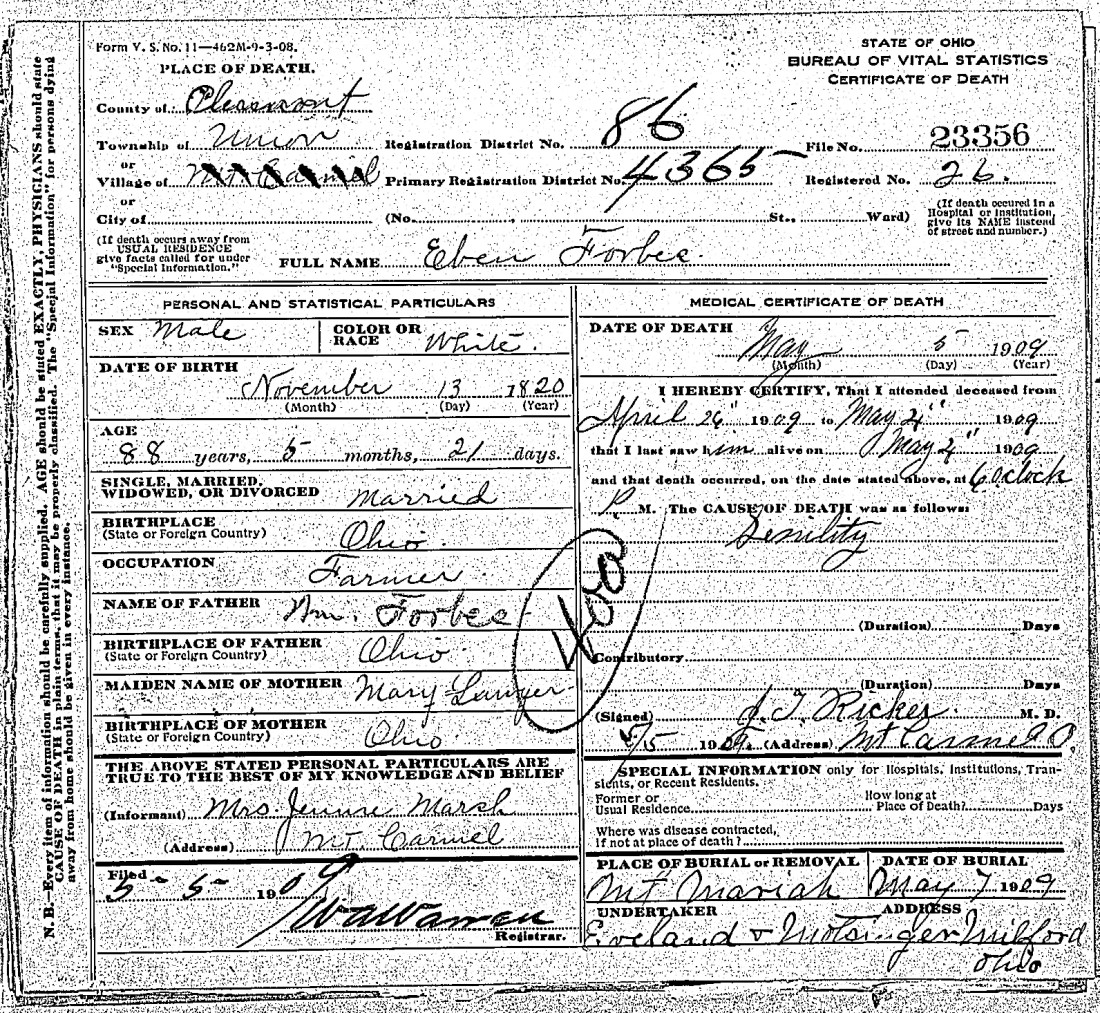 Form V. S. No. 11—462M-9-3-08.
STATE OF OHIO
BUREAU OF VITAL STATISTICS
CERTIFICATE OF DEATH
PLACE OF DEATH.
County of Clermont
Township of Union
Registration District No. 86
File No. 23356
or
Village of Mt Carmel
Primary Registration District No. 4365
Registered No. 26.
or
City of (No. , St., Ward)
(If death occured in a Hospital or institution, give its NAME instead of street and number.)
(If death occurs away from USUAL RESIDENCE give facts called for under "Special Information.")
FULL NAME Eben Forbes
PERSONAL AND STATISTICAL PARTICULARS
SEX Male
COLOR OR RACE White.
DATE OF BIRTH
November 13 1820
(Month) (Day) (Year)
AGE
88 years, 5 months, 21 days.
SINGLE, MARRIED, WIDOWED, OR DIVORCED Married
BIRTHPLACE
(State or Foreign Country) Ohio.
OCCUPATION Farmer
NAME OF FATHER Wm. Forbes
BIRTHPLACE OF FATHER
(State or Foreign Country) Ohio.
MAIDEN NAME OF MOTHER Mary
BIRTHPLACE OF MOTHER
(State or Foreign Country) Ohio
THE ABOVE STATED PERSONAL PARTICULARS ARE
TRUE TO THE BEST OF MY KNOWLEDGE AND BELIEF
(Informant) Mrs Jennie Marsh
(Address) Mt Carmel
Filed
5-5- 1909
WaWarren
Registrar.
MEDICAL CERTIFICATE OF DEATH
DATE OF DEATH
May 5 1909
(Month) (Day) (Year)
I HEREBY CERTIFY, That I attended deceased from
April 26" 1909 to May 4" 1909
that I last saw him alive on May 4" 1909
and that death occurred, on the date stated above, at 6 Oclock
P. M. The CAUSE OF DEATH was as follows:
Senility
(Duration) Days
Contributory
(Duration) Days
(Signed) J. T. Ricker. M. D.
5/5 1909. (Address) Mt Carmel O.
SPECIAL INFORMATION only for Hospitals, Institutions, Transients, or Recent Residents.
Former or Usual Residence
How long at Place of Death? Days
Where was disease contracted,
If not at place of death?
PLACE OF BURIAL or REMOVAL
Mt Mariah
DATE OF BURIAL
May 7 1909
UNDERTAKER
Eveland & Motsinger
ADDRESS
Milford
Ohio
N. B.—Every item of information should be carefully supplied. AGE should be stated EXACTLY, PHYSICIANS should state
CAUSE OF DEATH in plain terms, that it may be properly classified. The "Special Information" for persons dying
away from home should be given in every instance.